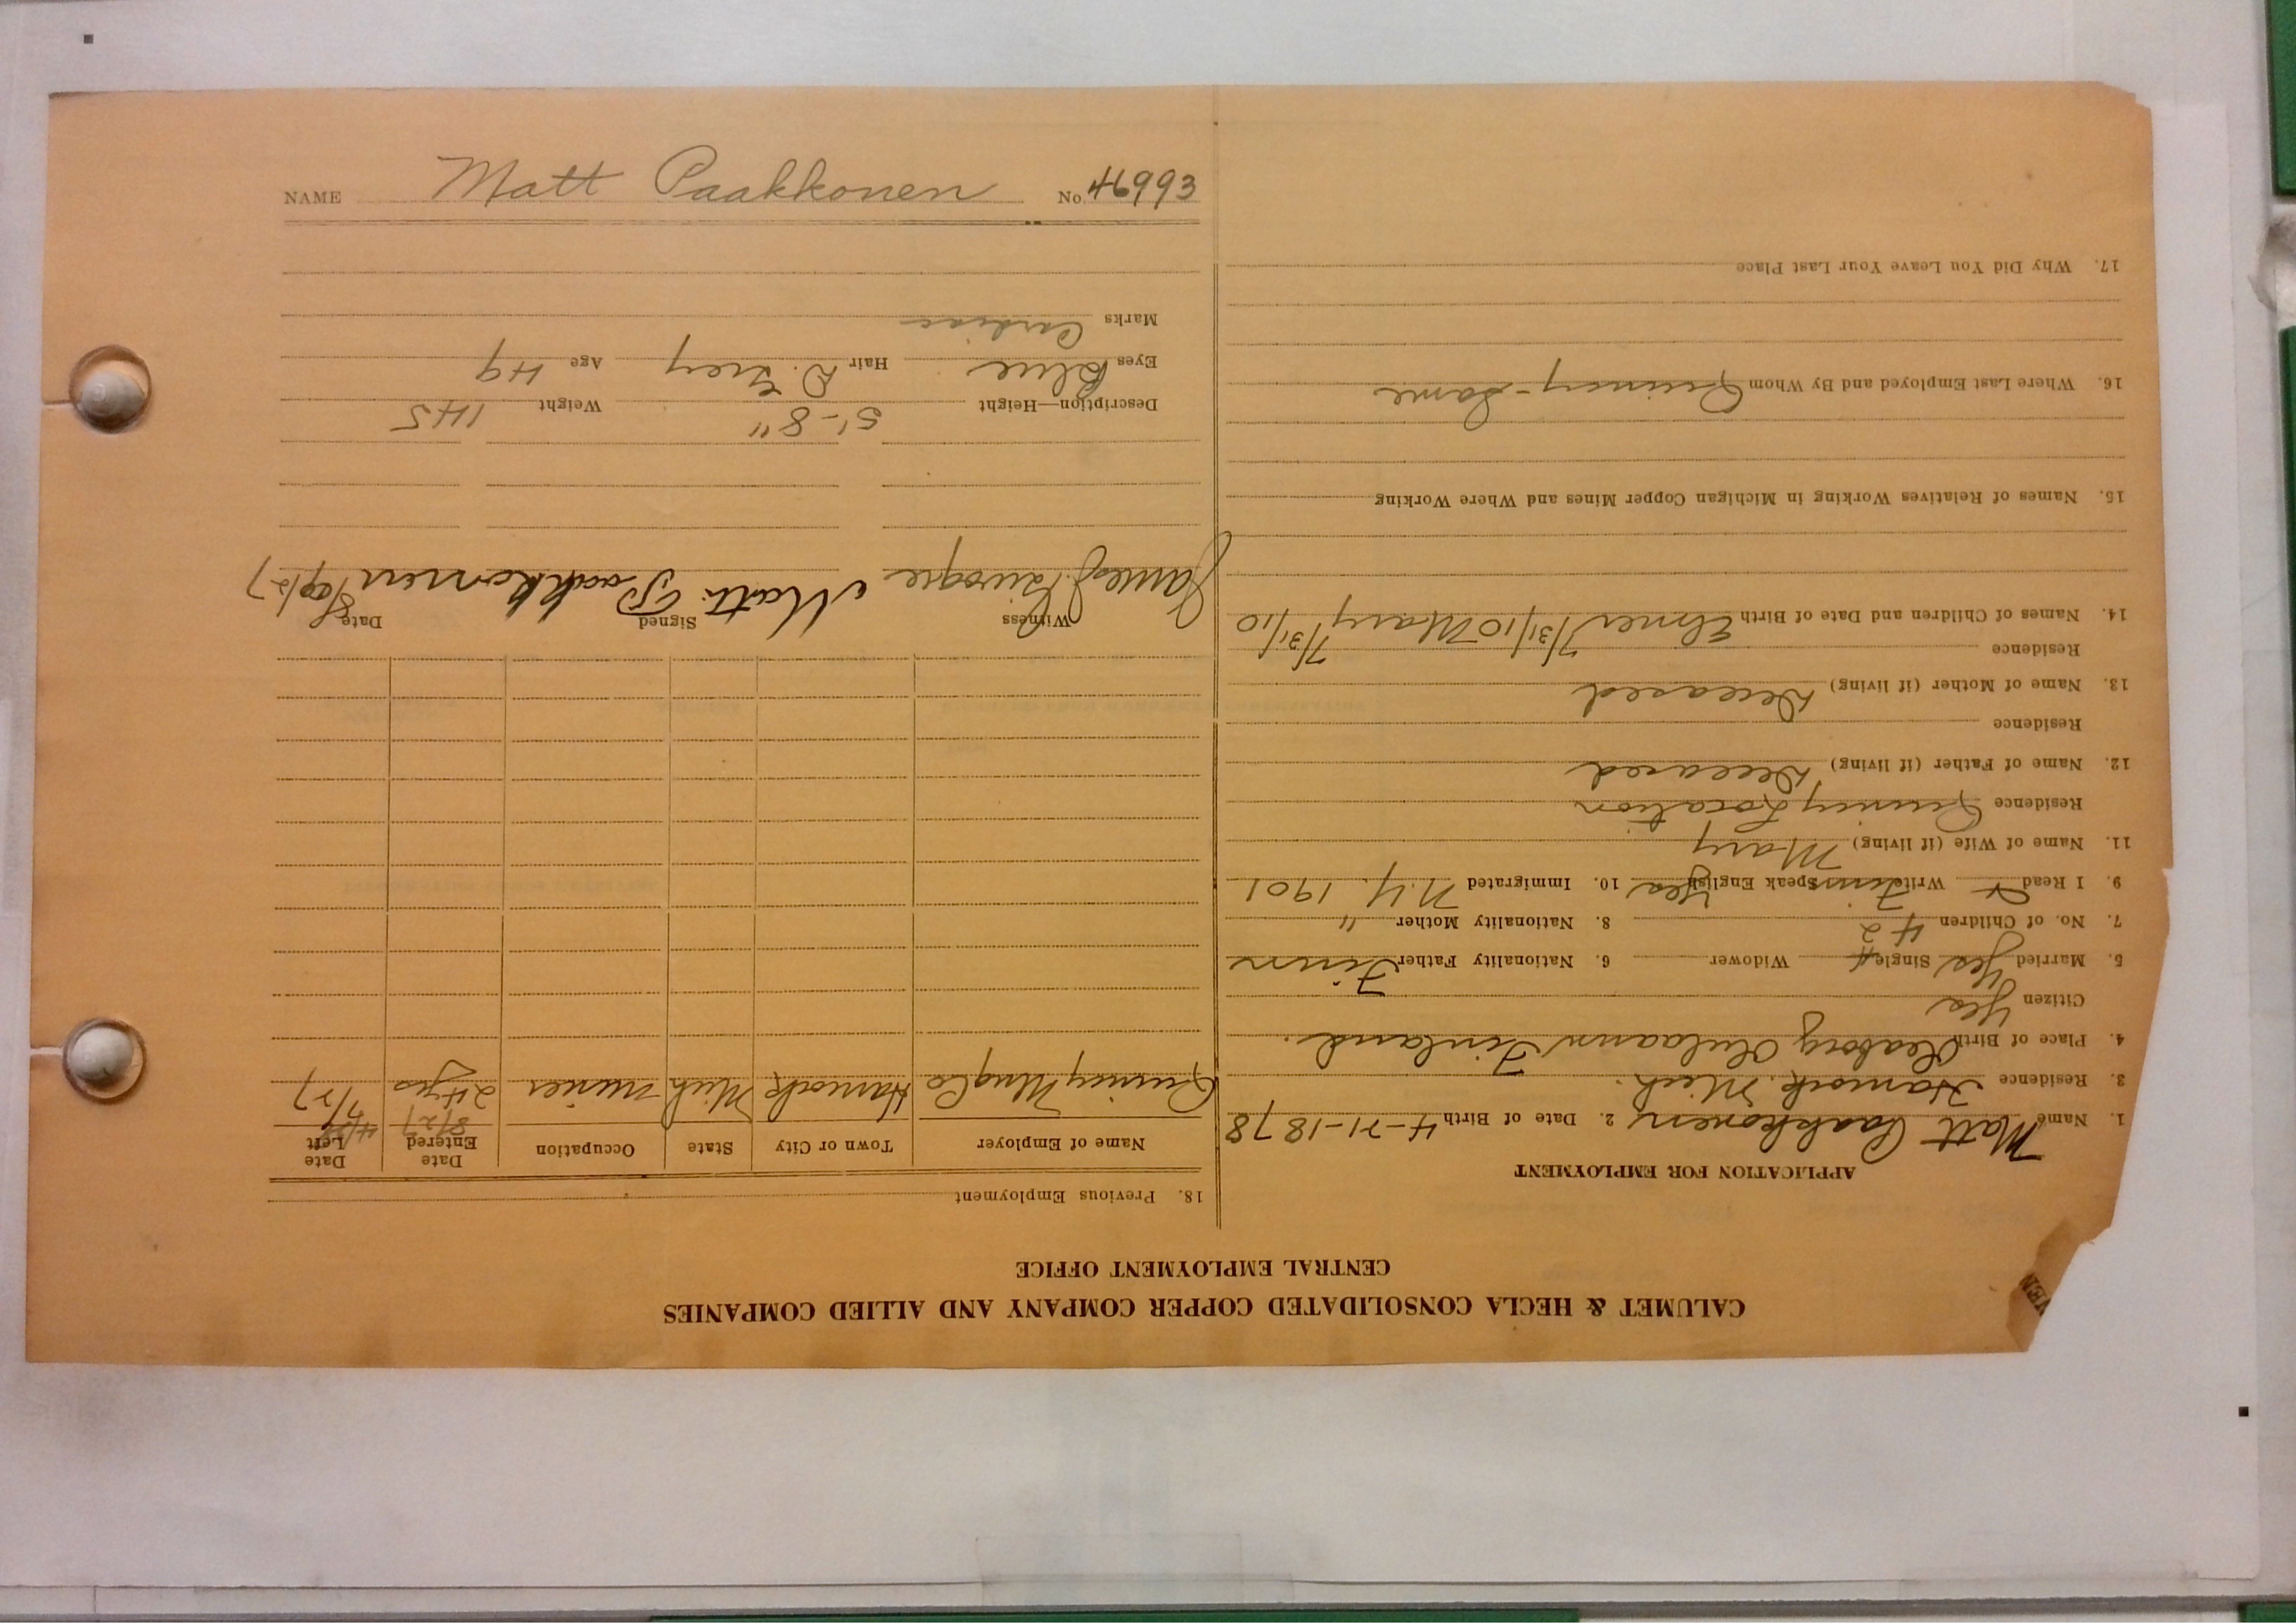 NAME Matt Paakkonen No. 46993
CALUMET & HECLA CONSOLIDATED COPPER COMPANY AND ALLIED COMPANIES
CENTRAL EMPLOYMENT OFFICE
VEN
APPLICATION FOR EMPLOYMENT
1. Name Matt Paakkonen 2. Date of Birth 4-21-1878
3. Residence Hancock, Mich.
4. Place of Birth Oulaann Finland.
Citizen Yes
5. Married Yes Single Widower 6. Nationality Father Finn
7. No. of Children 4 2 8. Nationality Mother "
9. I Read Write Finn Speak English Yes 10. Immigrated N.Y. 1901
11. Name of Wife (if living) Mary
Residence Quincy Location
12. Name of Father (if living) Deceased
Residence
13. Name of Mother (if living) Deceased
Residence
14. Names of Children and Date of Birth Elmer 7/31/10 Mary 7/31/10
15. Names of Relatives Working in Michigan Copper Mines and Where Working
16. Where Last Employed and By Whom Quincy - Same
17. Why Did You Leave Your Last Place
18. Previous Employment
Name of Employer Town or City State Occupation Date Entered Date Left
8/27
Quincy Mng Co Hancock Mich miner 24 yrs 7/27
Witness Signed Date
James Matti Paakkonen
Description—Height 5'-8" Weight 145
Eyes Blue Hair D. Grey Age 49
Marks Cardiac